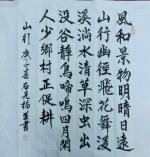 風和景物明晴日遠
山行幽徑飛花舞漫
溪淌水清草深虫出
没谷靜鳥啼鳴四月閑
人少鄉村正促耕
山行 庚子 書